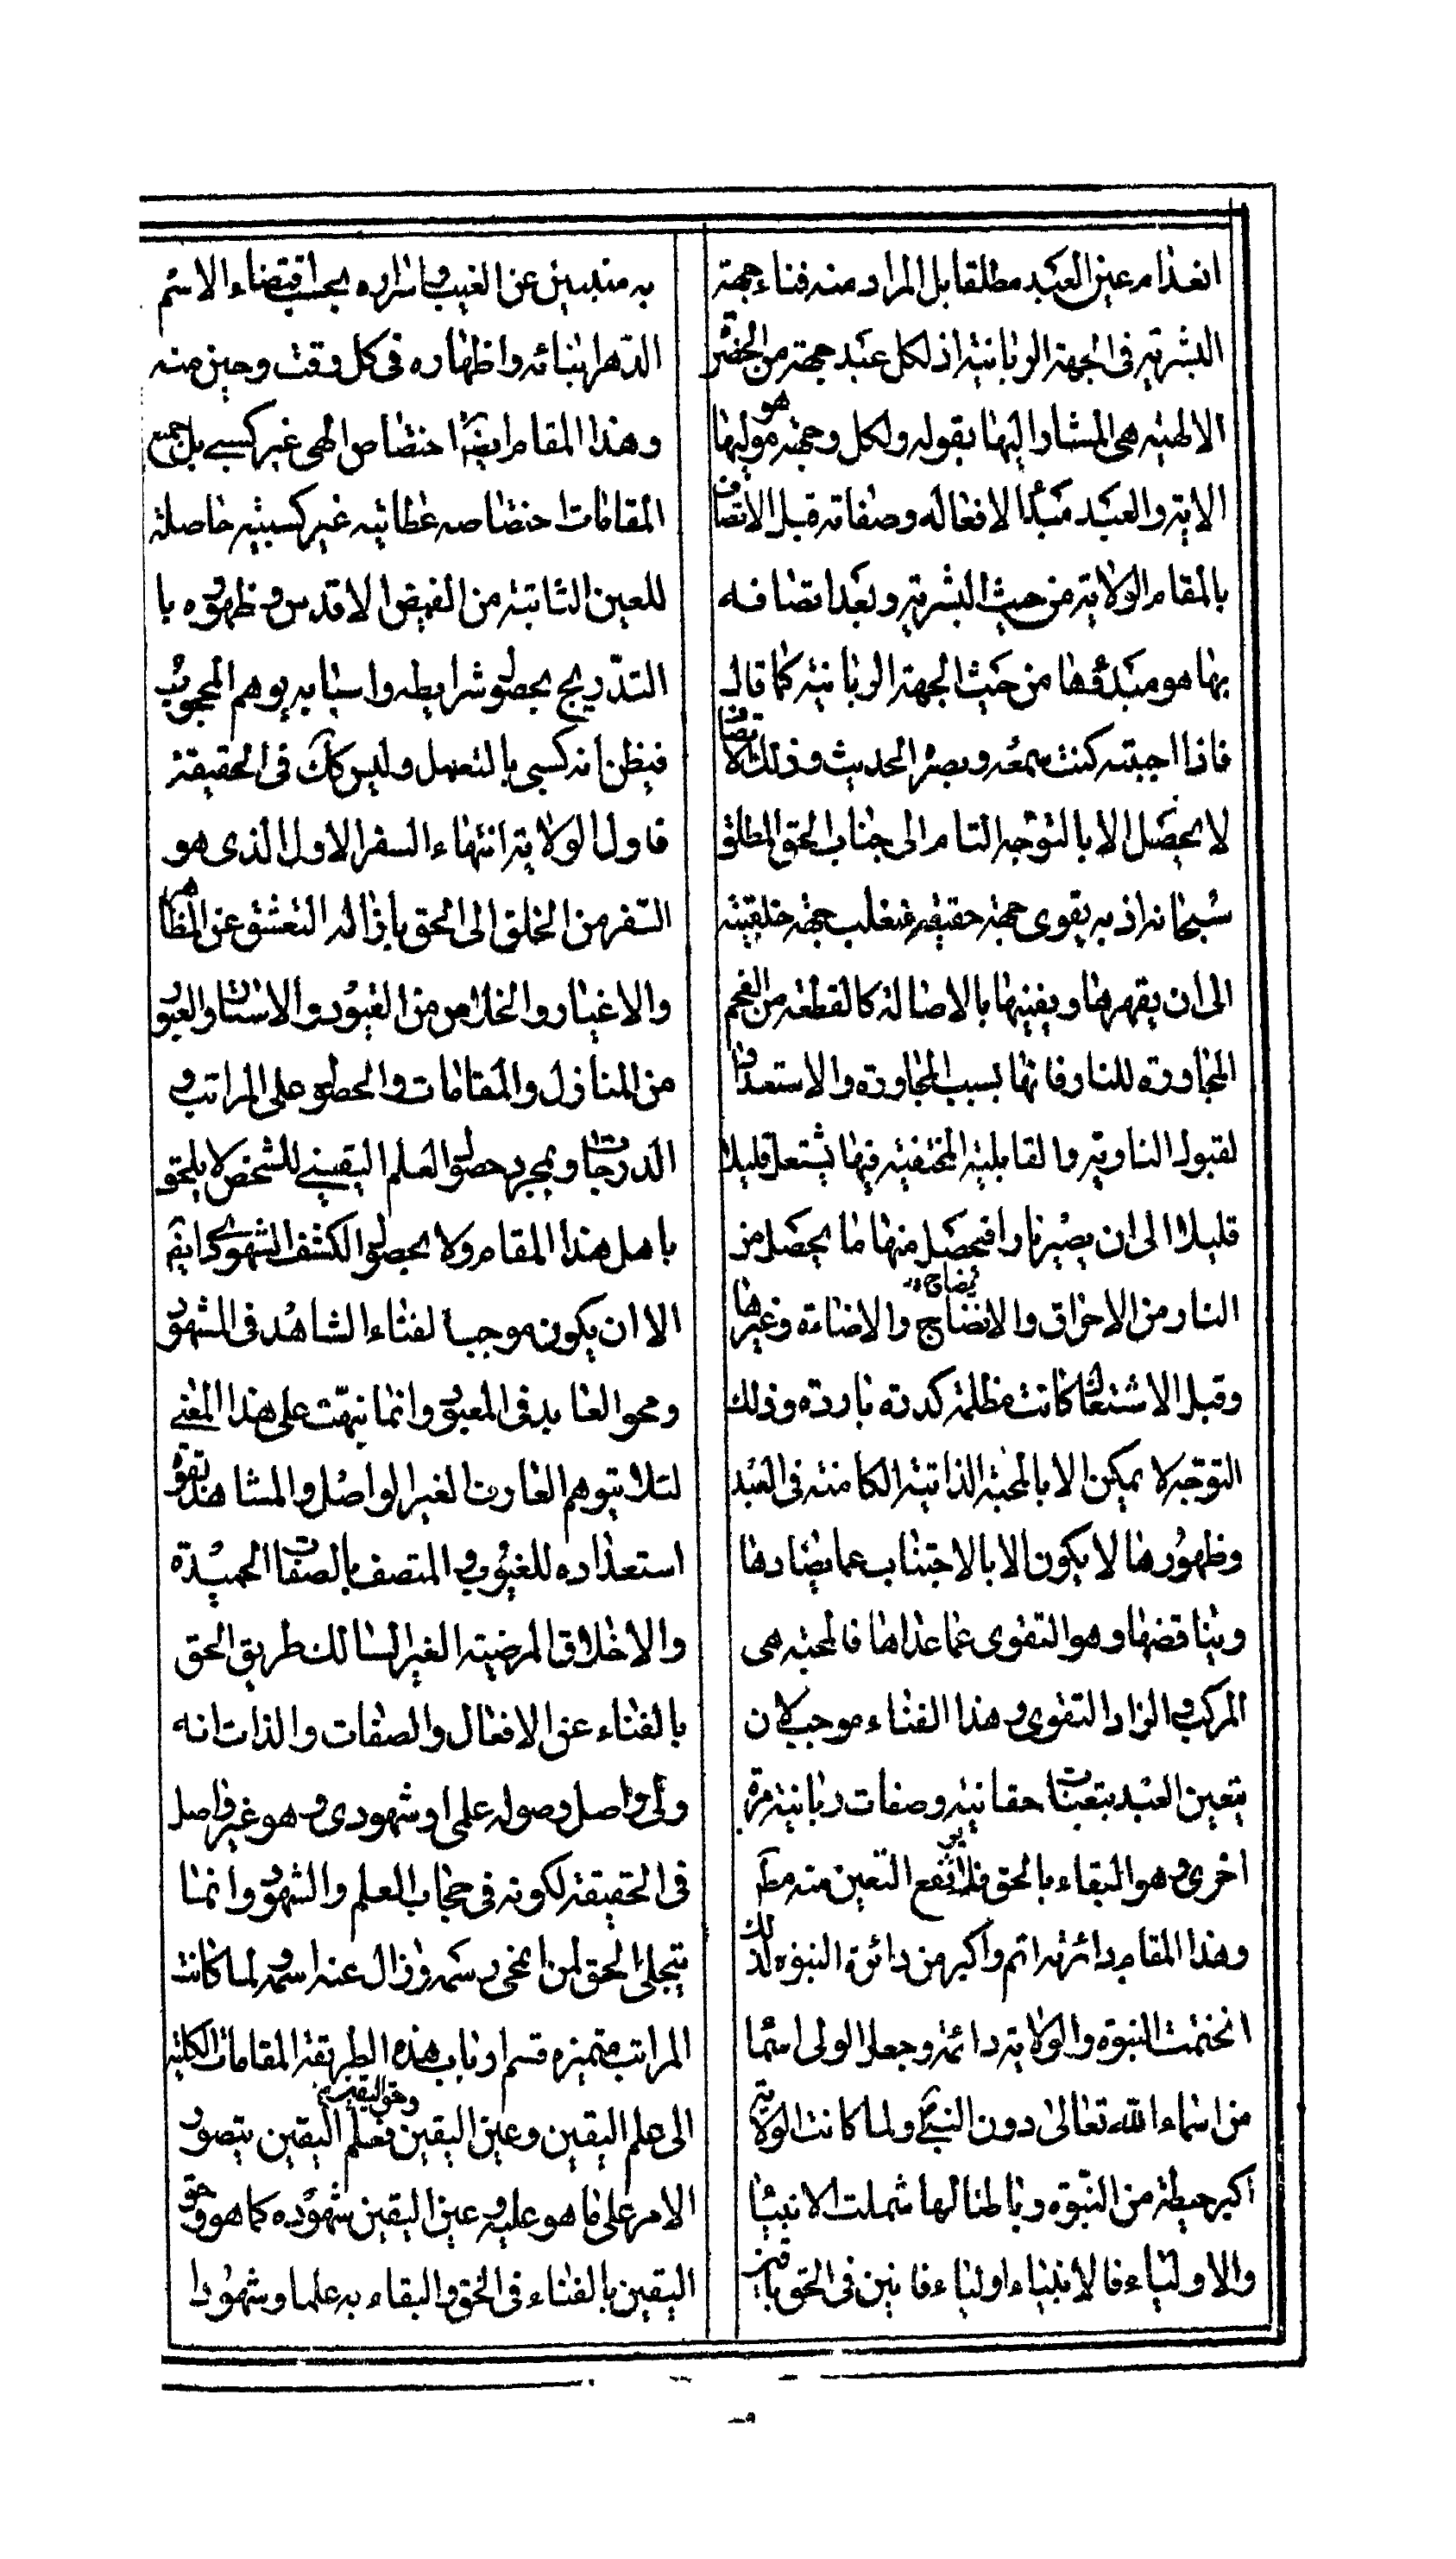 انعدام عين العبد مطلقا بل المراد منه فناء جهته
البشرية فى الجهة الربانية اذ لكل عبد جهة من الحضرة
الالهية هى المشار اليها بقوله ولكل وجهة هو موليها
الاية والعبد مبدأ لافعاله وصفاته قبل الاتصاف
بالمقام الولاية من حيث البشرية وبعد اتصافه
بها هو مبدؤها من حيث الجهة الربانية كما قال
فاذا احببته كنت سمعه وبصره الحديث وذلك الاتصاف
لا يحصل الا بالتوجه التام الى جناب الحق المطلق
سبحانه اذ به يقوى جهة حقيقته فتغلب جهة خلقيته
الى ان يقهرها ويفنيها بالاصالة كالقطعة من الفحم
المجاورة للنار فانها بسبب المجاورة والاستعداد
لقبول النارية والقابلية المختفية فيها يشتعل قليلا
قليلا الى ان يصير نارا فيحصل منها ما يحصل من
النار من الاحراق والانضاج والاضاءة وغيرها
وقبل الاشتعال كانت مظلمة كدرة باردة وذلك
التوجه لا يمكن الا بالمحبة الذاتية الكامنة فى العبد
وظهورها لا يكون الا بالاجتناب عما يضادها
ويناقضها وهو التقوى عما عداها فالمحبة هى
المركب والزاد التقوى وهذا الفناء موجب لان
يتعين العبد بتعينات حقانية وصفات ربانية مرة
اخرى وهو البقاء بالحق فلا يرتفع التعين منه مطَ
وهذا المقام دائرته اتم واكبر من دائرة النبوة لذلك
انختمت النبوة والولاية دائمة وجعل الولى اسما
من اسماء الله تعالى دون النبى ولما كانت الولاية
اكبر حيطة من النبوة وباطنا لها شملت الانبيا
والاولياء فالانبياء اولياء فانين فى الحق باقين
به منبئين عن الغيب واسراره بحسب اقتضاء الاسم
الدهر انبائه واظهاره فى كل وقت وحين منه
وهذا المقام ايضا اختصاص الهى غير كسبى بل جميع
المقامات اختصاصه عطائيه غير كسبيته حاصلة
للعين الثابتة من الفيض الاقدس وظهوره با
التدريج بحصول شرايطه واسبابه يوهم المحجوب
فيظن انه كسبى بالتعمل وليس كك فى الحقيقة
فاول الولاية انتهاء السفر الاول الذى هو
السفر من الخلق الى الحق بازالة التعشق عن المظاهر
والاغيار والخلاص من القيود والاستار والعبور
من المنازل والمقامات والحصول على المراتب و
الدرجات وبمجرد حصول العلم اليقينى للشخص لا يلحق
باهل هذا المقام ولا بحصول الكشف الشهودى ايضَ
الا ان يكون موجبا لفناء الشاهد فى المشهود
ومحو العابد فى المعبود وانما نبهت على هذا المعنى
لئلا يتوهم العارف الغير الواصل والمشاهد بقوة
استعداده للغيوب والمتصف بالصفات الحميدة
والاخلاق المرضية الغير السالك طريق الحق
بالفناء عن الافعال والصفات والذات انه
ولى واصل وصوله علمى او شهودى وهو غير واصل
فى الحقيقة لكونه فى حجاب العلم والشهود وانما
يتجلى الحق لمن انمحى رسمه وزال عنه اسمه ولما كانت
المراتب متميزه قسم ارباب هذه الطريقة المقامات الكلية
الى علم اليقين وعين اليقين وحق اليقين فعلم اليقين بتصور
الامر على ما هو عليه وعين اليقين شهوده كما هو وحق
اليقين بالفناء فى الحق والبقاء به علما وشهودا